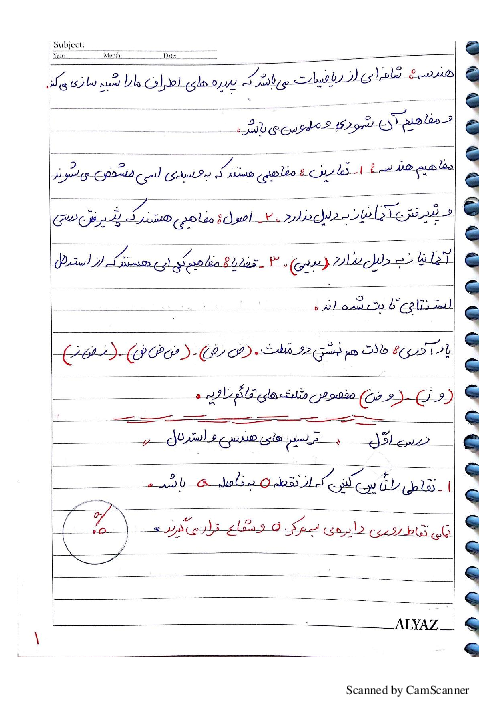 Subject:
Year. Month. Date.
هندسه: شاخه‌ای از ریاضیات می باشد که پدیده های اطراف ما را شبیه سازی می کند
و مفاهیم آن شهودی و ملموس می باشد.
مفاهیم هندسه: ۱- تعاریف: مفاهیمی هستند که به وسیله‌ی اسمی مشخص می شوند
و پذیرفتن آنها نیاز به دلیل ندارد. ۲- اصول: مفاهیمی هستند که پذیرفتن درستی
آنها نیاز به دلیل ندارد (بدیهی). ۳- قضایا: مفاهیم کلی ای هستند که از استدلال
استنتاجی ثابت شده اند.
یادآوری: حالت هم نهشتی دو مثلث. (ض ض ض). (ض ز ض). (ز ض ز)
(و ز) - (و ض) مخصوص مثلث های قائم زاویه.
درس اوّل ترسیم های هندسی و استدلال
۱- نقاطی را تعیین کنید که از نقطه O به فاصله a باشد.
تمامی نقاط روی دایره‌ی به مرکز O و شعاع a قرار می گیرند.
a
o
ALYAZ
۱
Scanned by CamScanner